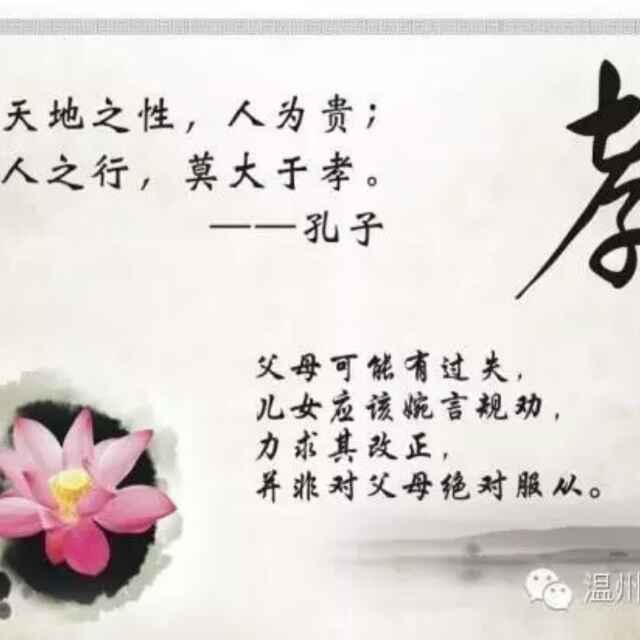 天地之性，人为贵；
人之行，莫大于孝。
——孔子
孝
父母可能有过失，
儿女应该婉言规劝，
力求其改正，
并非对父母绝对服从。
温州